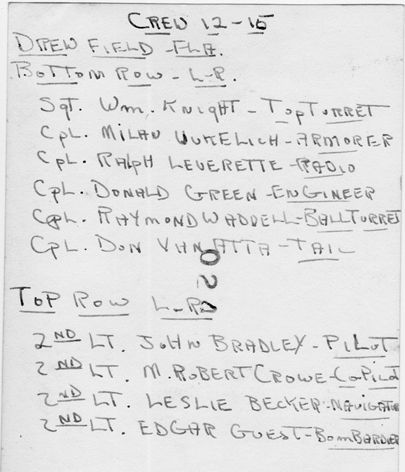 CREW 12-15
DREW FIELD - FLA.
BOTTOM ROW - L-R.
SGT. WM. KNIGHT - TOP TURRET
CPL. MILAN VUKELICH - ARMORER
CPL. RALPH LEVERETTE - RADIO
CPL. DONALD GREEN - ENGINEER
CPL. RAYMOND WADDELL - BALL TURRET
CPL. DON VAN ATTA - TAIL
20
TOP ROW L-R
2ND LT. JOHN BRADLEY - PILOT
2ND LT. M. ROBERT CROWE - CO PILOT
2ND LT. LESLIE BECKER - NAVIGATOR
2ND LT. EDGAR GUEST - BOMBARDIER